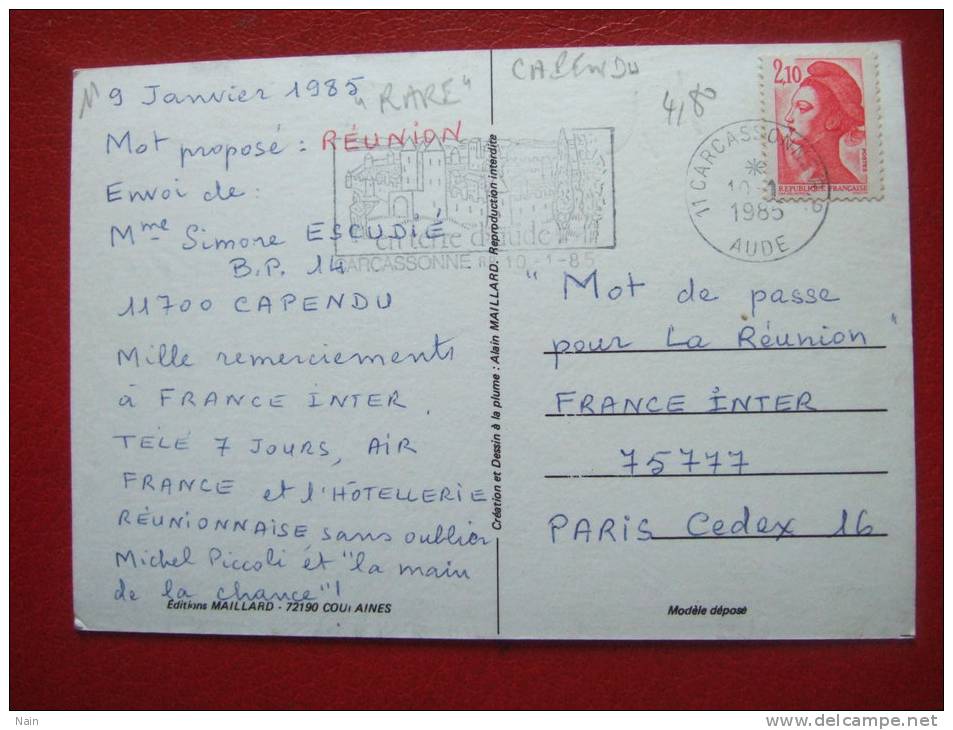 9 Janvier 1985
"RARE"
Mot proposé : RÉUNION
Envoi de :
Mme Simone ESCUDIÉ
B.P. 14
11700 CAPENDU
Mille remerciements
à FRANCE INTER.
TELE 7 JOURS, AIR
FRANCE et l'HÔTELLERIE
RÉUNIONNAISE sans oublier
Michel Piccoli et "la main
de la chance"!
Éditions MAILLARD - 72190 COULAINES
en terre d'aude
CARCASSONNE RP 10-1-85
Création et Dessin à la plume : Alain MAILLARD. Reproduction interdite
CAPENDU
4,80
2,10
POSTES
REPUBLIQUE FRANÇAISE
11 CARCASSONNE
1985
AUDE
"Mot de passe
pour La Réunion"
FRANCE INTER
75777
PARIS Cedex 16
Modèle déposé
Nain
www.delcampe.net